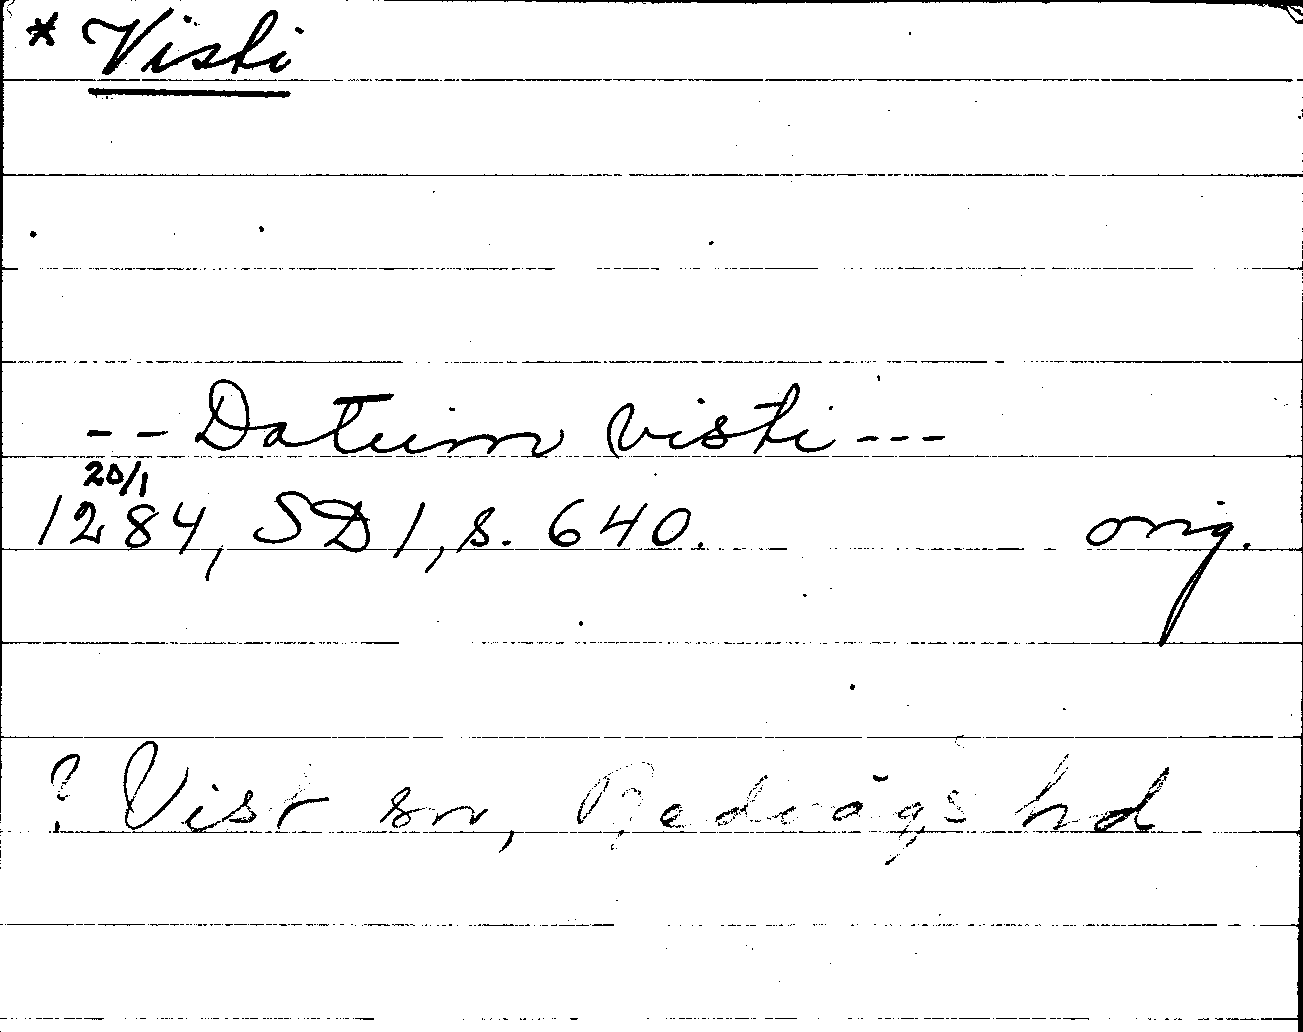 * Visti
-- Datum visti ---
20/1
1284, SD 1, s. 640. orig.
? Vist sn, Redvägs hd